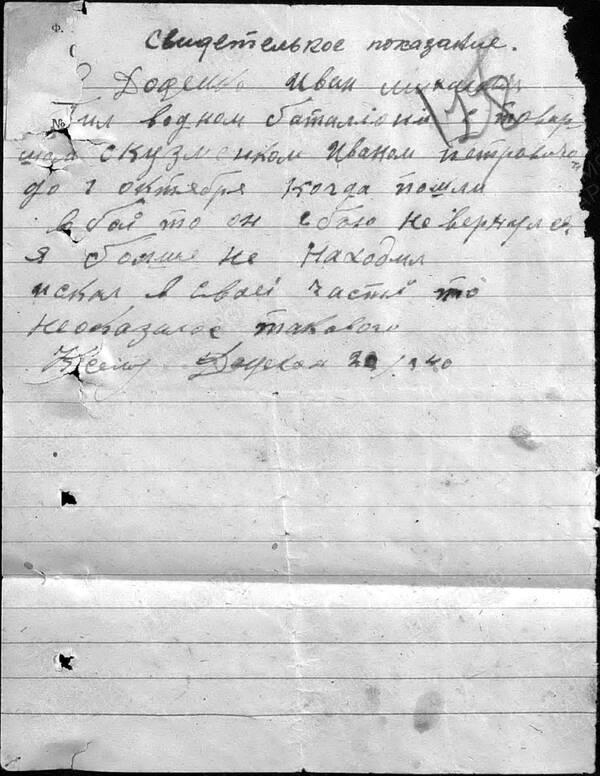 Свидетелькое показание.
Иван
был водном баталіони с товар
ищом скузменком Иваном петровичом
до 1 октября когда пошли
в бой то он с бою не вернулся
я больше не Находил
искал в своеі части то
неоказалос такового
20/ 40
128
Ф.
№